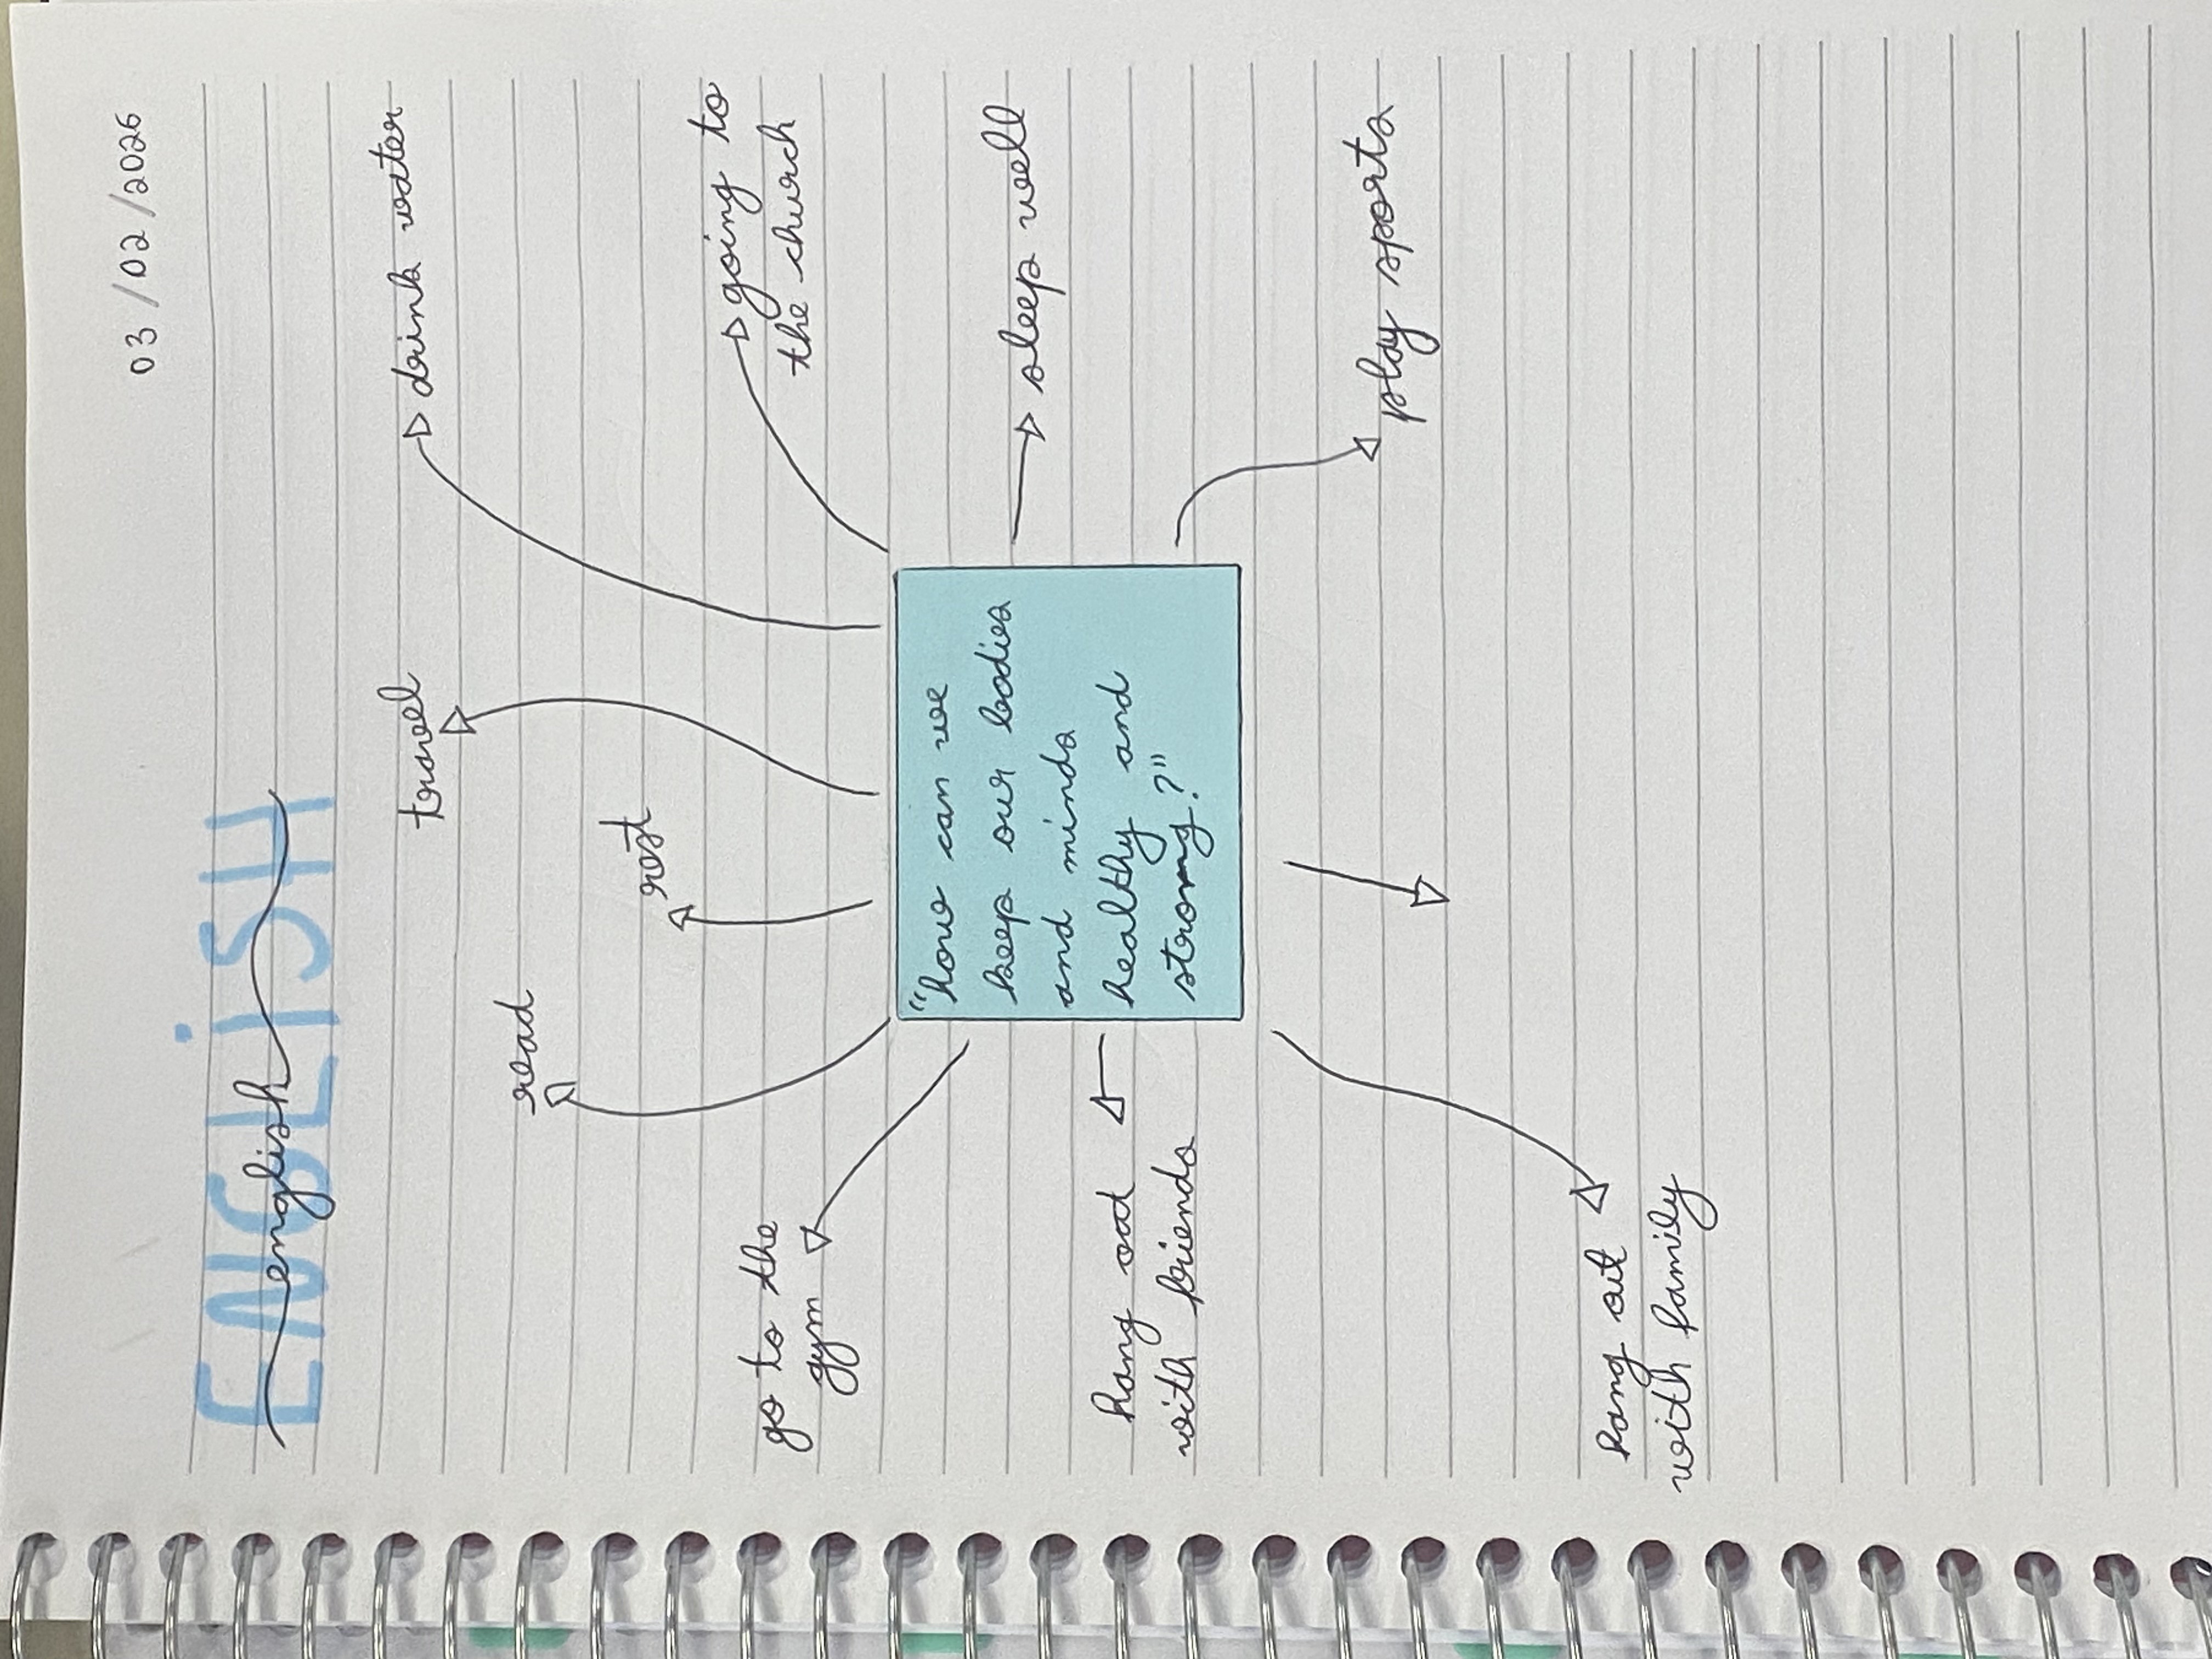 03/02/2026
ENGLiSH
english
travel
drink water
read
rest
going to
the church
go to the
gym
"how can we
keep our bodies
and minds
healthy and
strong?"
sleep well
hang out
with friends
play sports
hang out
with family